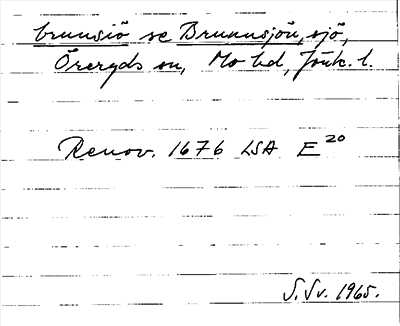 brunsiö se Brunnsjön, sjö,
Öreryds sn, Mo hd, Jönk. l.
Renov. 1676 LSA E²⁰
S. Sv. 1965.